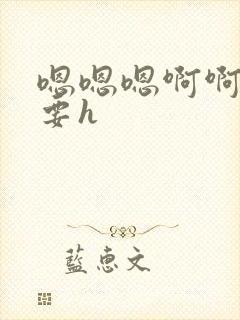 嗯嗯嗯啊啊
要h
蓝惠文